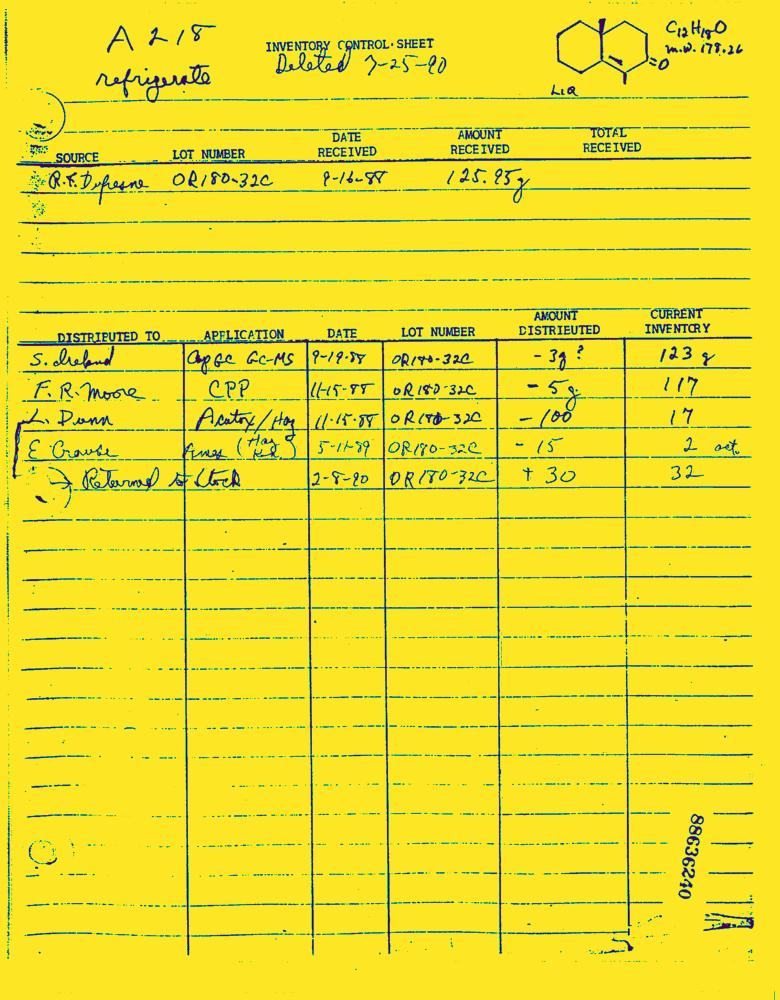 A 218
refrigerate
INVENTORY CONTROL SHEET
Deleted 7-25-90
C12H18O
m.w. 178.26
O
LIQ
SOURCE LOT NUMBER DATE RECEIVED AMOUNT RECEIVED TOTAL RECEIVED
R.F. Dufresne OR180-32C 9-16-88 125.95g
DISTRIBUTED TO APPLICATION DATE LOT NUMBER AMOUNT DISTRIBUTED CURRENT INVENTORY
S. Ireland Cap GC GC-MS 9-19-88 OR180-32C - 3g ? 123 g
F. R. Moore CPP 11-15-88 OR180-32C - 5g 117
L. Dunn Acutox/Haz 11-15-88 OR180-32C - 100 17
E Crouse 5-11-89 OR180-32C - 15 2
Returned to Stock 2-8-90 OR180-32C + 30 32
88636240